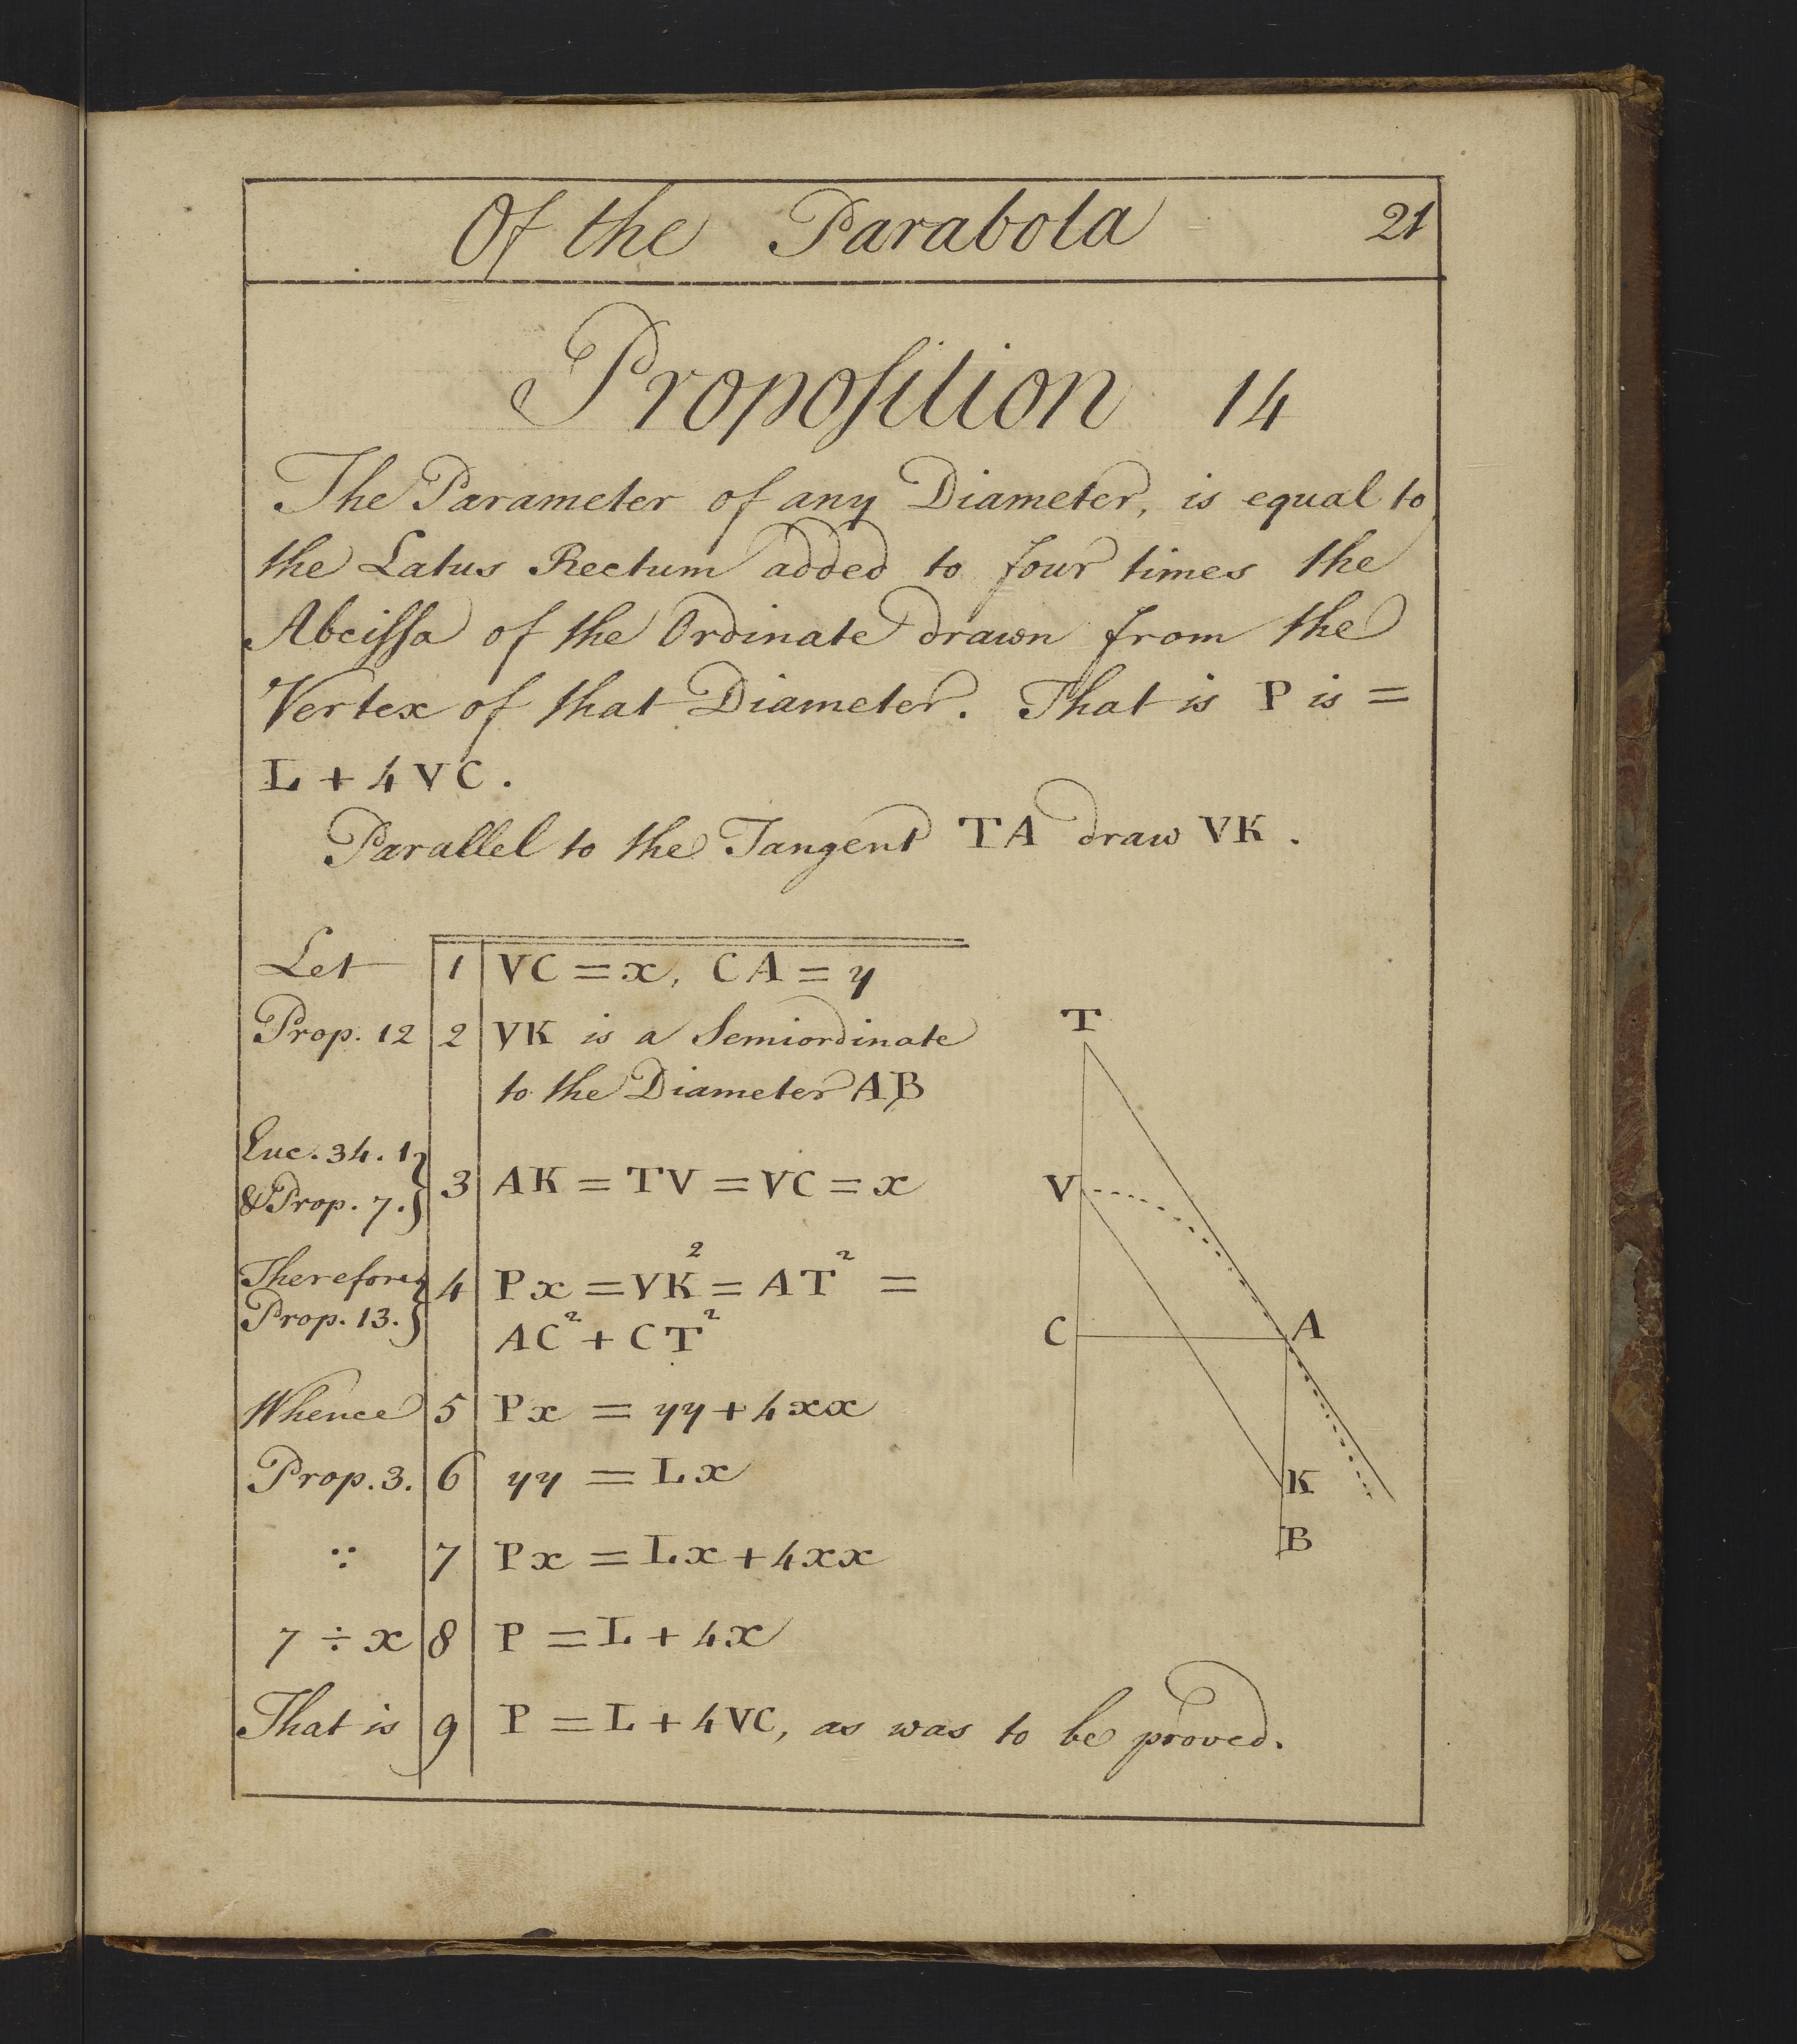 Of the Parabola 21
Proposition 14
The Parameter of any Diameter, is equal to
the Latus Rectum added to four times the
Abcissa of the Ordinate drawn from the
Vertex of that Diameter. That is P is =
L + 4VC.
Parallel to the Tangent TA draw VK.
Let 1 VC = x, CA = y
Prop. 12 2 VK is a Semiordinate
to the Diameter AB
Euc. 34. 1
& Prop. 7. } 3 AK = TV = VC = x
Therefore
Prop. 13. } 4 Px = VK² = AT² =
AC² + CT²
Whence 5 Px = yy + 4xx
Prop. 3. 6 yy = Lx
∵ 7 Px = Lx + 4xx
7 ÷ x 8 P = L + 4x
That is 9 P = L + 4VC, as was to be proved.
T
V
C A
K
B